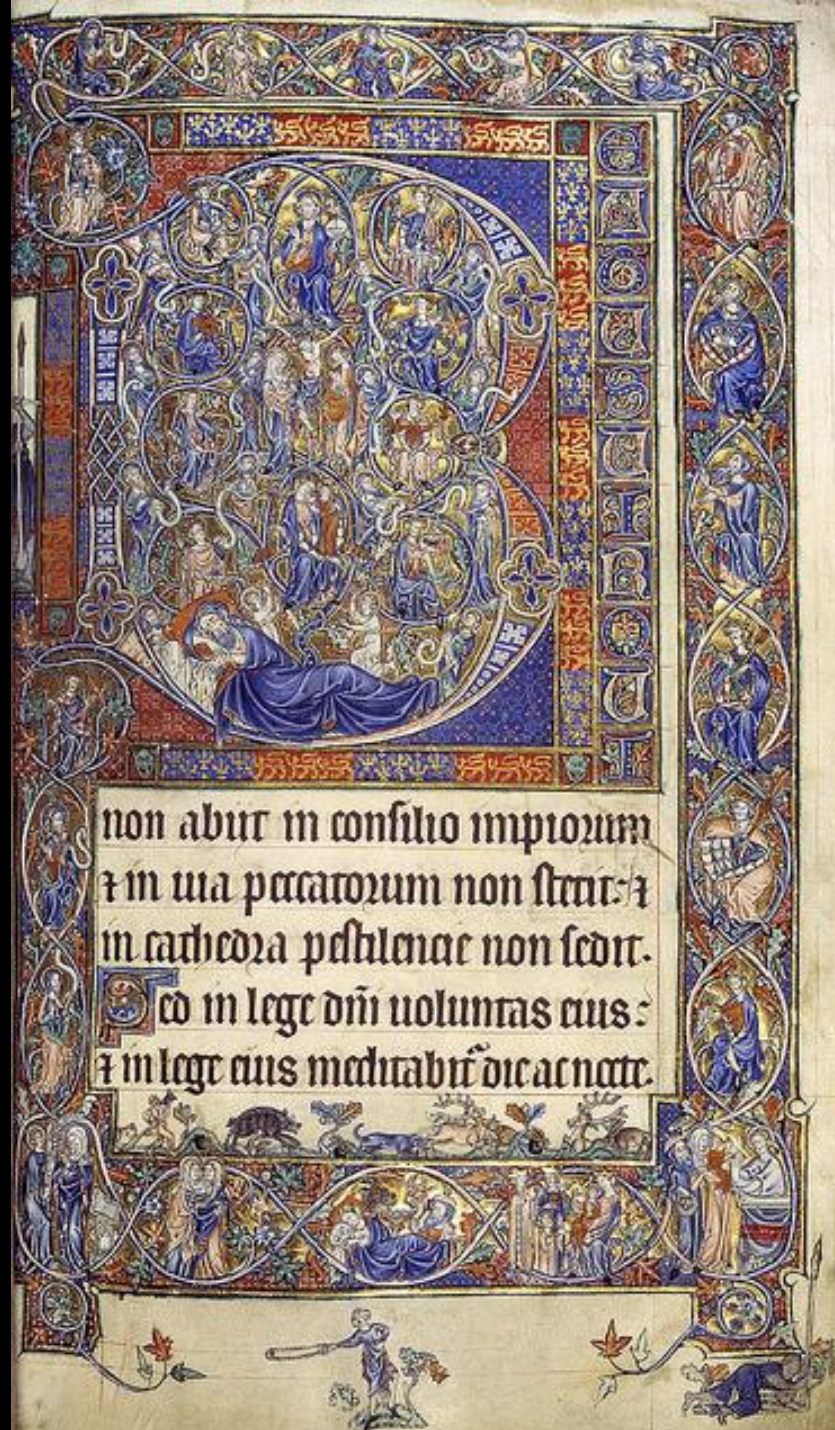 BEATUS UIR QUI
non abiit in consilio impiorum
⁊ in uia peccatorum non stetit: ⁊
in cathedra pestilencie non sedit.
Sed in lege dn̄i uoluntas eius:
⁊ in lege eius meditabit᷑ die ac nocte.